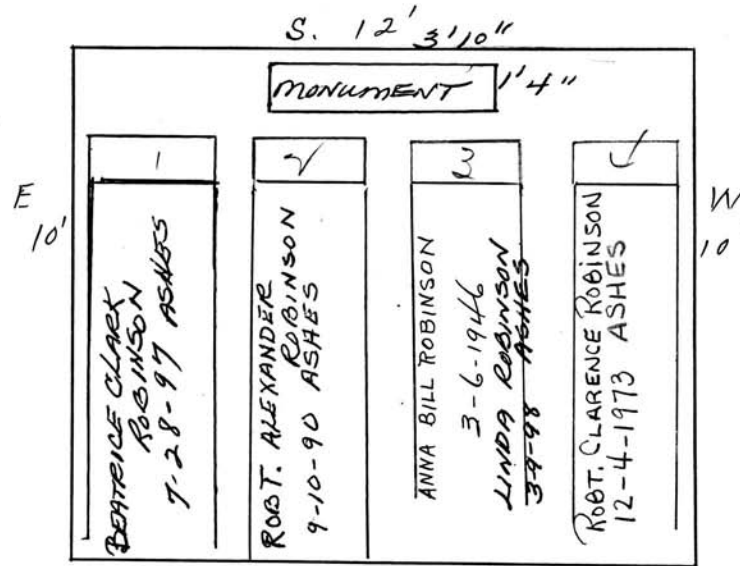 S. 12'
3'10"
MONUMENT
1'4"
E
10'
W
10
1
BEATRICE CLARK
ROBINSON
7-28-97 ASHES
ROBT. ALEXANDER
ROBINSON
9-10-90 ASHES
ANNA BILL ROBINSON
3-6-1946
LINDA ROBINSON
3-9-98 ASHES
ROBT. CLARENCE ROBINSON
12-4-1973 ASHES